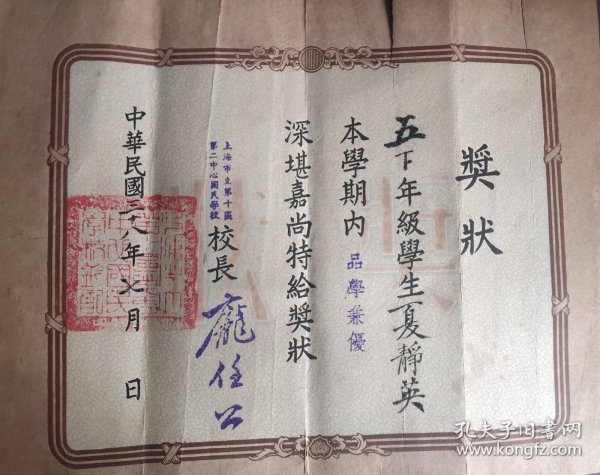 獎狀
五下年級學生夏靜英
本學期内品學兼優
深堪嘉尚特給獎狀
上海市立第十區
第二中心國民學校
校長 龐任公
中華民國三十八年七月 日
獎狀
孔夫子旧书网
www.kongfz.com